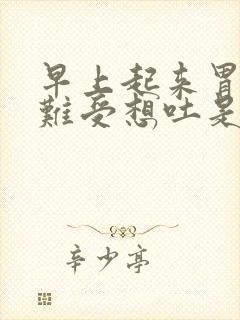 早上起来胃
难受想吐是
辛少亭